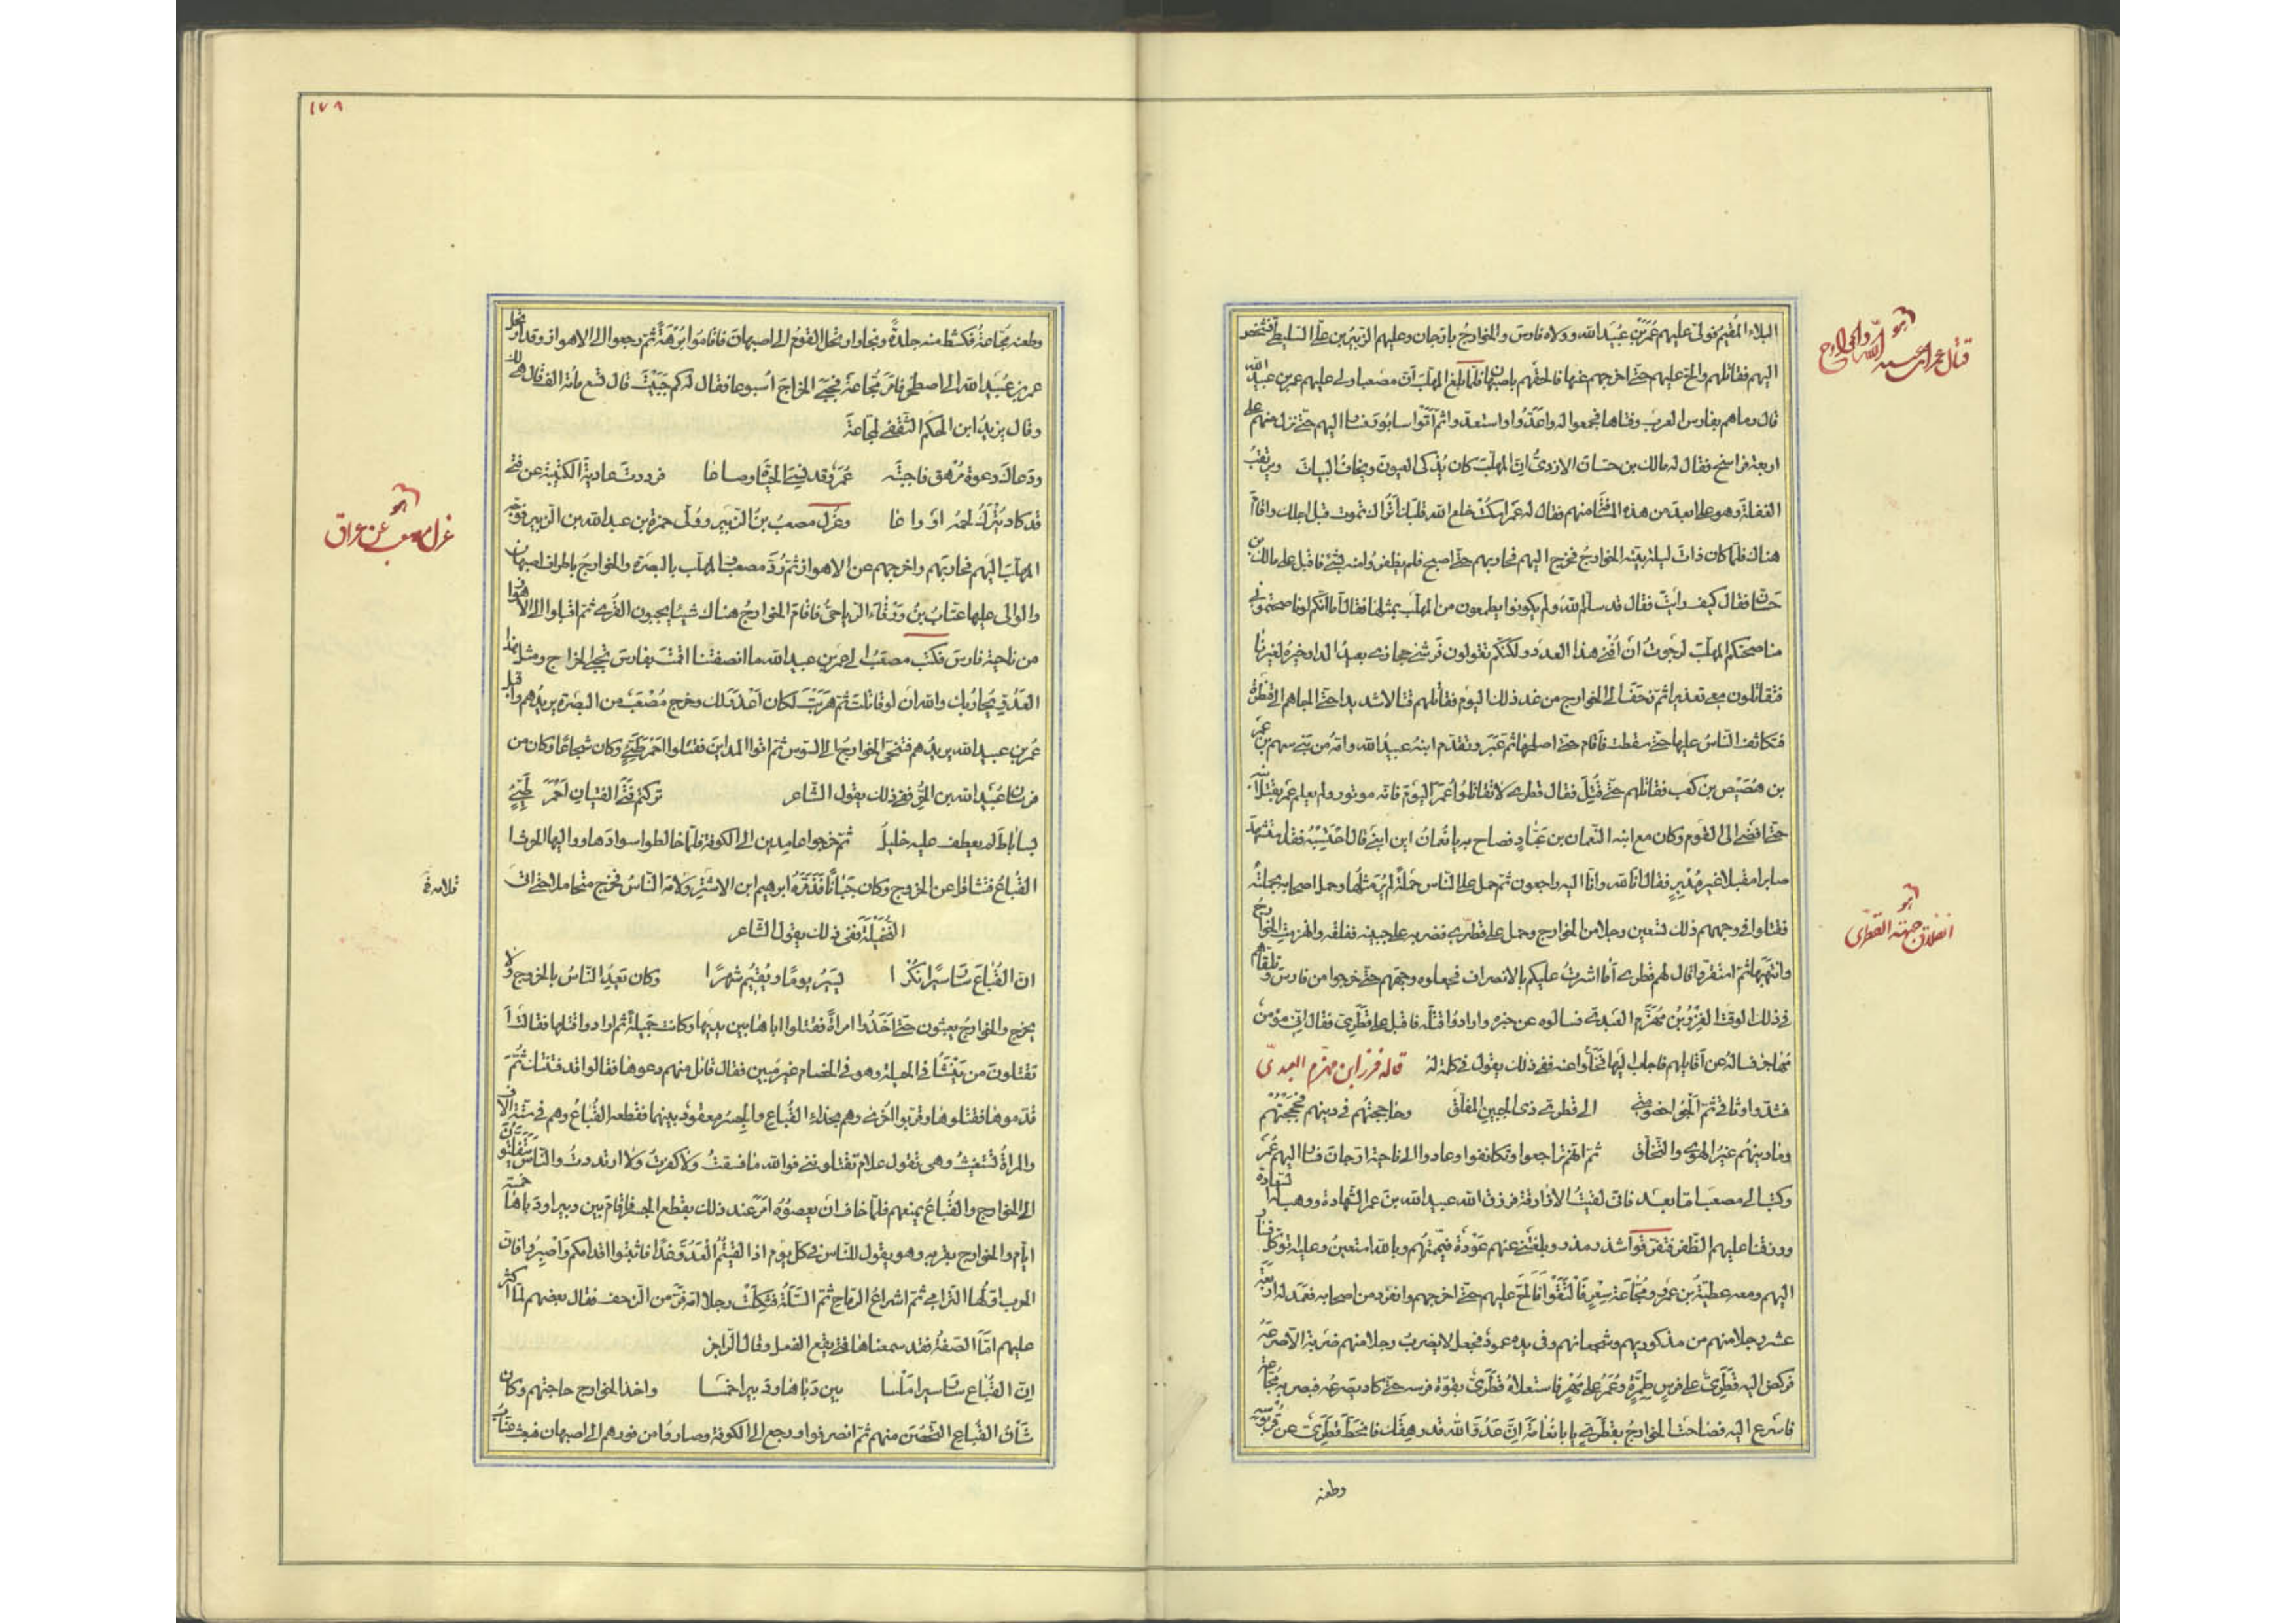 البلاء المقيم فولى عليهم عمر بن عبيد الله وولاه فارس والخوارج بارجان وعليهم الزبير بن على السليطى فشخص
اليهم فقاتلهم والح عليهم حتى اخرجهم عنها فالحقهم باصبهان فلما بلغ المهلب ان مصعبا ولى عليهم عمر بن عبيد الله
قال رماهم بفارس العرب وفتاها فجمعوا له واعدوا واستعدوا ثم اتوا سابور فسار اليهم حتى نزل منهم على
اربعة فراسخ فقال له مالك بن حسان الازدى ان المهلب كان يذكى العيون ويخاف البيات ويرتقب
الغفلة وهو على ابعد من هذه المسافة منهم فقال له عمر اسكت خلع الله قلبك اتراك تموت قبل اجلك واقام
هناك فلما كان ذات ليلة بيته الخوارج فخرج اليهم فحاربهم حتى اصبح فلم يظفروا منه بشئ فاقبل على مالك بن
حسان فقال كيف رايت فقال قد سلم الله ولم يكونوا يطمعون من المهلب بمثلها فقال اما انكم لو ناصحتمونى
مناصحتكم المهلب لرجوت ان انفى هذا العدو ولكنكم تقولون قرشى حجازى بعيد الدار خيره لغيرنا
فتقاتلون معى تعذيرا ثم زحف الى الخوارج من غد ذلك اليوم فقاتلهم قتالا شديدا حتى الجاهم الى قنطرة
فتكاثف الناس عليها حتى سقطت فاقام حتى اصلحها ثم عبر وتقدم ابنه عبيد الله وامه من بنى سهم بن عمر
بن هصيص بن كعب فقاتلهم حتى قتل فقال قطرى لا تقاتلوا عمر اليوم فانه موتور ولم يعلم عمر بقتل ابنه
حتى افضى الى القوم وكان مع ابنه النعمان بن عباد فصاح به يا نعمان اين ابنى قال احتسبه فقد استشهد
صابرا مقبلا غير مدبر فقال انا لله وانا اليه راجعون ثم حمل على الناس حملة لم ير مثلها وحمل اصحابه بحملته
فقتلوا فى وجههم ذلك تسعين رجلا من الخوارج وحمل على قطرى فضربه على جبينه ففلقه وانهزمت الخوارج
وانتهبها ثم استقروا قال لهم قطرى اما اشرت عليكم بالانصراف فجعلوه وجههم حتى خرجوا من فارس وتلقاهم
فى ذلك الوقت الفزر بن مهزم العبدى فسالوه عن خبره وارادوا قتله فاقبل على قطرى فقال انى مؤمن
مهاجر فساله عن اقاويلهم فاجاب اليها فخلوا عنه ففى ذلك يقول فى كلمة له قاله فزر ابن مهزم العبدى
فشدوا وثاقى ثم الجوا خصومتى الى قطرى ذى الجبين المفلق وحاججتهم فى دينهم فحججتهم
وما دينهم غير الهوى والتخلق ثم انهم تراجعوا وتكانفوا وعادوا الى ناحية ارجان فسار اليهم عمر
وكتب الى مصعب اما بعد فانى لقيت الازارقة فرزق الله عبيد الله بن عمر الشهادة ووهب له السعادة
ورزقنا عليهم الظفر فتفرقوا شذر مذر وبلغتنى عنهم عودة فيممتهم وبالله استعين وعليه توكل فسار
اليهم ومعه عطية بن عمرو ومجاعة بن سعر فالتقوا فالح عليهم حتى اخرجهم وانفرد من اصحابه فعمد له اربعة
عشر رجلا منهم من مذكوريهم وشجعانهم وفى يده عمود فجعل لا يضرب رجلا منهم ضربة الا صرعه
فركض اليه قطرى على فرس طمرة وعمر على مهر فاستعلاه قطرى بقوة فرسه حتى كاد يصرعه فبصر به مجاعة
فاسرع اليه فصاحت الخوارج بقطرى يا با نعامة ان عدو الله قد رهقك فانحط قطرى عن قربوسه
وطعنه
قتال عمر ابن عبيد الله والخوارج
انفلاق جبهة القطرى
١٧٨
وطعنه مجاعة فكشط منه جلدة ونجا وارتحل القوم الى اصبهان فاقاموا برهة ثم رجعوا الى الاهواز وقد ارتحل
عمر بن عبيد الله الى اصطخر فامر مجاعة فجبى الخراج اسبوعا فقال له كم جبيت قال تسع مائة الف فقال هى لك
وقال يزيد ابن الحكم الثقفى لمجاعة
ودعاك دعوة مرهق فاجبته عمر وقد نسى الحياة وضاعا فرددت عادية الكتيبة عن فتى
قد كاد يترك لحمه اوزاعا وعزل مصعب بن الزبير وولى حمزة بن عبد الله بن الزبير فوجه
المهلب اليهم فحاربهم واخرجهم عن الاهواز ثم رد مصعب والمهلب بالبصرة والخوارج باطراف اصبهان
والوالى عليها عتاب بن ورقاء الرياحى فاقام الخوارج هناك شيئا يجبون القرى ثم اقبلوا الى الاهواز
من ناحية فارس فكتب مصعب الى عمر بن عبيد الله ما انصفتنا اقمت بفارس تجبى الخراج ومثل هذا
العدو يحاربك والله ان لو قاتلت ثم هربت لكان اعذر لك وخرج مصعب من البصرة يريدهم واقبل
عمر بن عبيد الله يريدهم فتنحى الخوارج الى السوس ثم اتوا المداين فقتلوا احمر طيئ وكان شجاعا وكان من
فرسان عبيد الله بن الحر ففى ذلك يقول الشاعر تركتم فتى الفتيان احمر طيئ
بساباط لم يعطف عليه خليل ثم خرجوا عامدين الى الكوفة فلما خالطوا سوادها وواليها الحرث
القباع فتثاقل عن الخروج وكان جبانا فذمره ابراهيم ابن الاشتر ولامه الناس فخرج متحاملا حتى اتى
النخيلة ففى ذلك يقول الشاعر
ان القباع سار سيرا نكرا يسير يوما ويقيم شهرا وكان يعد الناس بالخروج ولا
يخرج والخوارج يعيثون حتى اخذوا امراة فقتلوا اباها بين يديها وكانت جميلة ثم ارادوا قتلها فقالت ا
تقتلون من ينشا فى الحلية وهو فى الخصام غير مبين فقال قائل منهم دعوها فقالوا قد فتنتك ثم
قدموها فقتلوها وقربوا اخرى وهم بحذاء القباع والجسر معقود بينهما فقطعه القباع وهم فى ستة الاف
والمراة تستغيث وهى تقول علام تقتلوننى فوالله ما فسقت ولا كفرت ولا ارتددت والناس يتفلتون
الى الخوارج والقباع يمنعهم فلما خاف ان يعصوه امر عند ذلك بقطع الجسر فاقام بين دبيرا ودباها خمسة
ايام والخوارج بقربه وهو يقول للناس فى كل يوم اذا لقيتم العدو غدا فاثبتوا اقدامكم واصبروا فان
الحرب اولها الترامى ثم اشراع الرماح ثم السلة فثكلت رجلا امه فر من الزحف فقال بعضهم لما اكثر
عليهم اما الصفة فقد سمعناها فمتى يقع الفعل وقال الراجز
ان القباع سار سيرا ملسا بين دباها ودبيرا خمسا واخذ الخوارج حاجتهم وكان
شان القباع التحصن منهم ثم انصرفوا ورجع الى الكوفة وصاروا من فورهم الى اصبهان فبعث عتاب
عزل مصعب عن عراق